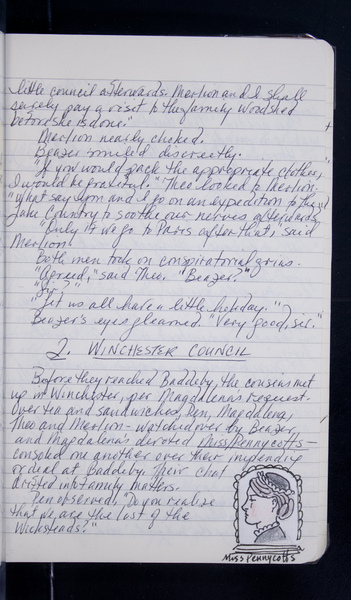 little council afterwards. Merlion and I shall
surely pay a visit to the family woodshed
before she is done."
Merlion nearly choked.
Beazer smiled discreetly.
"If you would pack the appropriate clothes,
I would be grateful." Theo looked to Merlion.
"What say you and I go on an expedition to the
Lake Country to soothe our nerves afterwards?"
"Only if we go to Paris after that," said
Merlion.
Both men took on conspiratorial grins.
"Agreed," said Theo. "Beazer?"
"Sir?"
"Let us all have a little holiday."
Beazer's eyes gleamed. "Very good, sir."
2. WINCHESTER COUNCIL
Before they reached Baddeby, the cousins met
up in Winchester, per Magdalena's request.
Over tea and sandwiches, Pen, Magdalena,
Theo and Merlion – watched over by Beazer
and Magdalena's devoted Miss Pennycotts –
consoled one another over their impending
ordeal at Baddeby. Their chat
drifted into family matters.
Pen observed, "Do you realize
that we are the last of the
Wicksteads?"
Miss Pennycotts